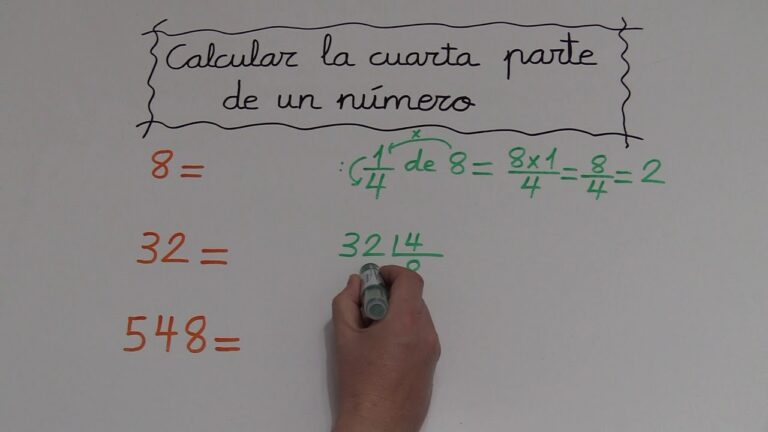 Calcular la cuarta parte
de un número
8 =
x
: 1/4 de 8 = 8x1/4 = 8/4 = 2
32 =
32 | 4
8
548 =